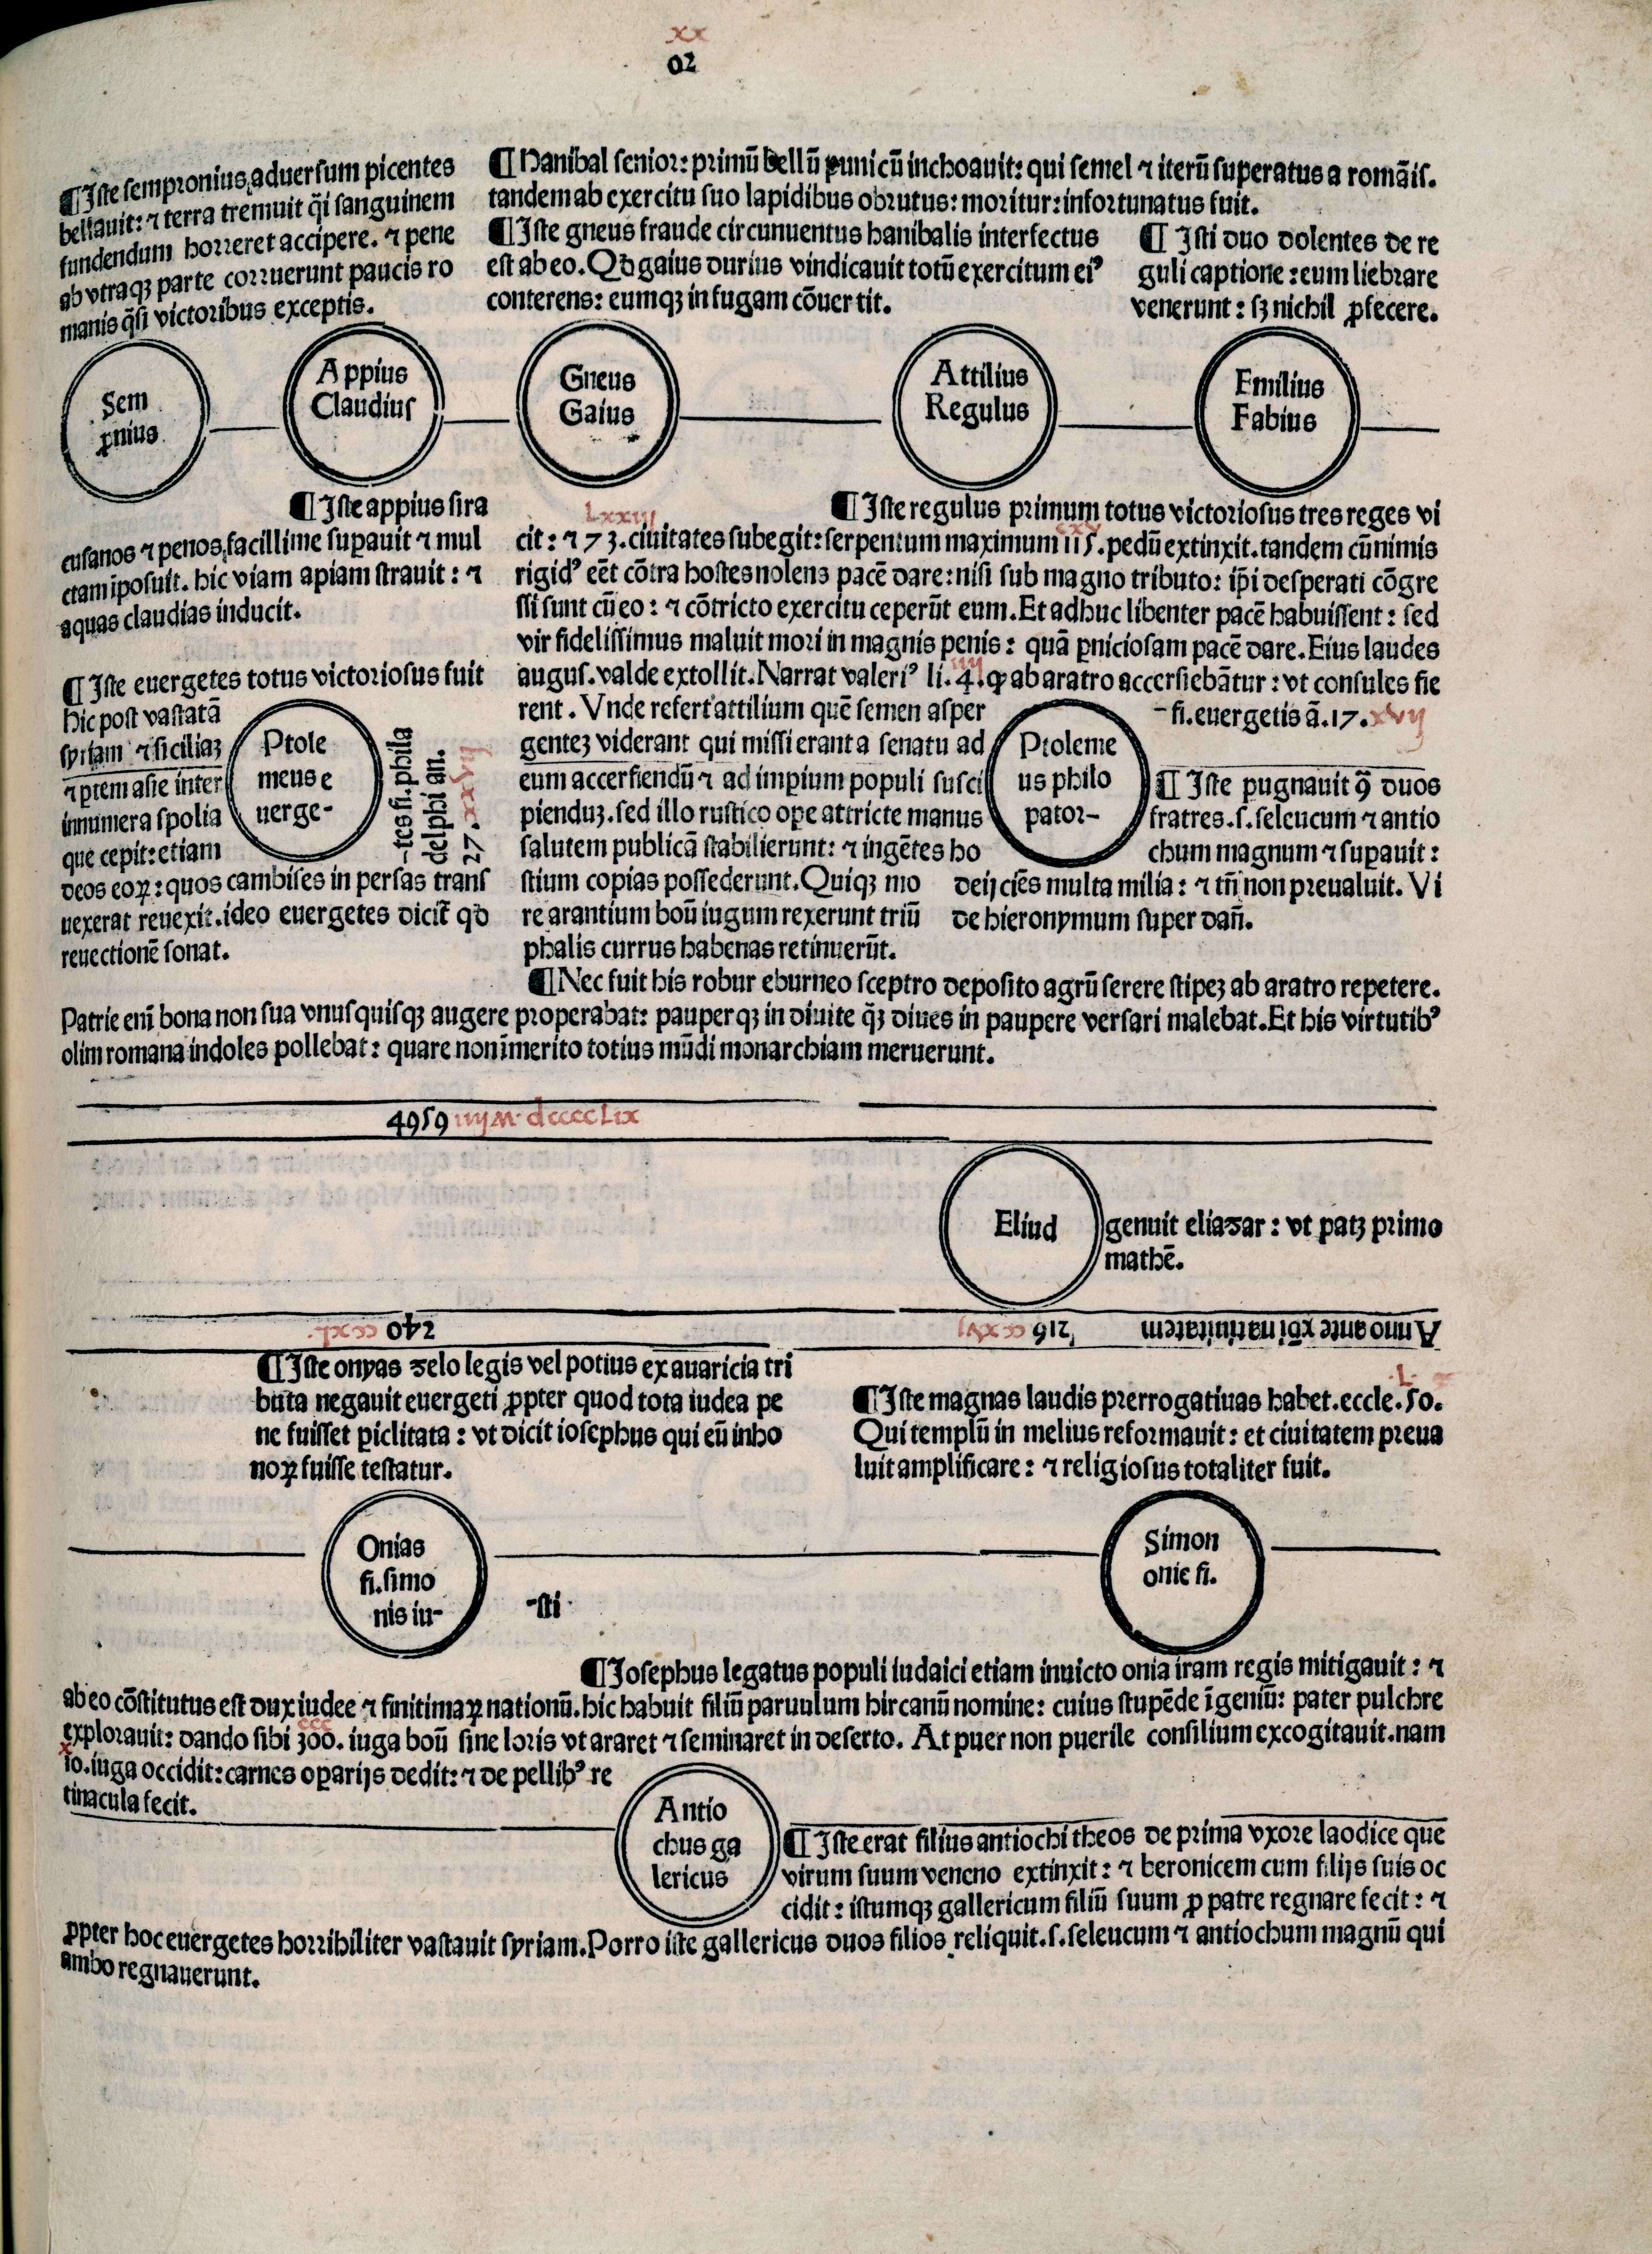 xx
02
¶Iste sempronius aduersum picentes
bellauit: ⁊ terra tremuit q̄si sanguinem
fundendum horreret accipere. ⁊ pene
ab vtraqꝫ parte corruerunt paucis ro
manis q̄si victoribus exceptis.
¶Hanibal senior: primū bellū punicū inchoauit: qui semel ⁊ iterū superatus a romāis.
tandem ab exercitu suo lapidibus obrutus: moritur: infortunatus fuit.
¶Iste gneus fraude circunuentus hanibalis interfectus
est ab eo. Qd gaius durius vindicauit totū exercitum eiꝰ
conterens: eumqꝫ in fugam cōuertit.
¶ Isti duo dolentes de re
guli captione: eum liebrare
venerunt: sꝫ nichil ꝓfecere.
Sem
ꝓnius
Appius
Claudius
Gneus
Gaius
Attilius
Regulus
Emilius
Fabius
¶Iste appius sira
cusanos ⁊ penos facillime suꝑauit ⁊ mul
ctam īposuit. hic viam apiam strauit: ⁊
aquas claudias inducit.
lxxiij
¶Iste regulus primum totus victoriosus tres reges vi
cxv
cit: ⁊ 73. ciuitates subegit: serpentum maximum 115. pedū extinxit. tandem cū nimis
rigidꝰ eēt cōtra hostes nolens pacē dare: nisi sub magno tributo: ip̄i desperati cōgre
ssi sunt cū eo: ⁊ cōtricto exercitu ceperūt eum. Et adhuc libenter pacē habuissent: sed
vir fidelissimus maluit mori in magnis penis: quā ꝑniciosam pacē dare. Eius laudes
augus. valde extollit. Narrat valeriꝰ li. 4. iiij ꝙ ab aratro accersiebātur: vt consules fie
rent. Vnde refert attilium quē semen asper
genteꝫ viderant qui missi erant a senatu ad
eum accersiendū ⁊ ad imꝑium populi susci
pienduꝫ. sed illo rustico oꝑe attricte manus
salutem publicā stabilierunt: ⁊ ingētes ho
stium copias possederunt. Quiqꝫ mo
re arantium boū iugum rexerunt triū
phalis currus habenas retinuerūt.
¶Iste euergetes totus victoriosus fuit
hic post vastatā
syriam ⁊ siciliaꝫ
⁊ ꝑtem asie inter
innumera spolia
que cepit: etiam
deos eoꝝ: quos cambises in persas trans
uexerat reuexit. ideo euergetes dicit̄ qd
reuectionē sonat.
Ptole
meus e
uerge-
-tes fi. phila
delphi an.
27. xxvij
Ptoleme
us philo
pator-
-fi. euergetis ā. 17. xvij
¶Iste pugnauit ꝯ̄ duos
fratres. s. seleucum ⁊ antio
chum magnum ⁊ suꝑauit:
deijciēs multa milia: ⁊ tn̄ non preualuit. Vi
de hieronymum super dan̄.
¶Nec fuit his robur eburneo sceptro deposito agrū serere stipeꝫ ab aratro repetere.
Patrie enī bona non sua vnusquisqꝫ augere properabat: pauperqꝫ in diuite q̄ꝫ diues in paupere versari malebat. Et his virtutibꝰ
olim romana indoles pollebat: quare non īmerito totius mūdi monarchiam meruerunt.
4959 iiijM dcccclix
Eliud
genuit eliazar: vt patꝫ primo
mathē.
Anno ante xp̄i natiuitatem 216 ccxvj
240 ccxl.
¶Iste onyas zelo legis vel potius ex auaricia tri
buta negauit euergeti ꝓpter quod tota iudea pe
ne fuisset ꝑiclitata: vt dicit iosephus qui eū inho
noꝝ fuisse testatur.
L
¶Iste magnas laudis prerrogatiuas habet. eccle. 50.
Qui templū in melius reformauit: et ciuitatem preua
luit amplificare: ⁊ religiosus totaliter fuit.
Onias
fi. simo
nis iu-
-sti
Simon
onie fi.
¶Iosephus legatus populi iudaici etiam inuicto onia iram regis mitigauit: ⁊
ab eo cōstitutus est dux iudee ⁊ finitimaꝝ nationū. hic habuit filiū paruulum hircanū nomine: cuius stupēde īgeniū: pater pulchre
ccc
explorauit: dando sibi 300. iuga boū sine loris vt araret ⁊ seminaret in deserto. At puer non puerile consilium excogitauit. nam
x
10. iuga occidit: carnes oꝑarijs dedit: ⁊ de pellibꝰ re
tinacula fecit.
Antio
chus ga
lericus
¶Iste erat filius antiochi theos de prima vxore laodice que
virum suum veneno extinxit: ⁊ beronicem cum filijs suis oc
cidit: istumqꝫ gallericum filiū suum ꝓ patre regnare fecit: ⁊
ꝓpter hoc euergetes horribiliter vastauit syriam. Porro iste gallericus duos filios reliquit. s. seleucum ⁊ antiochum magnū qui
ambo regnauerunt.